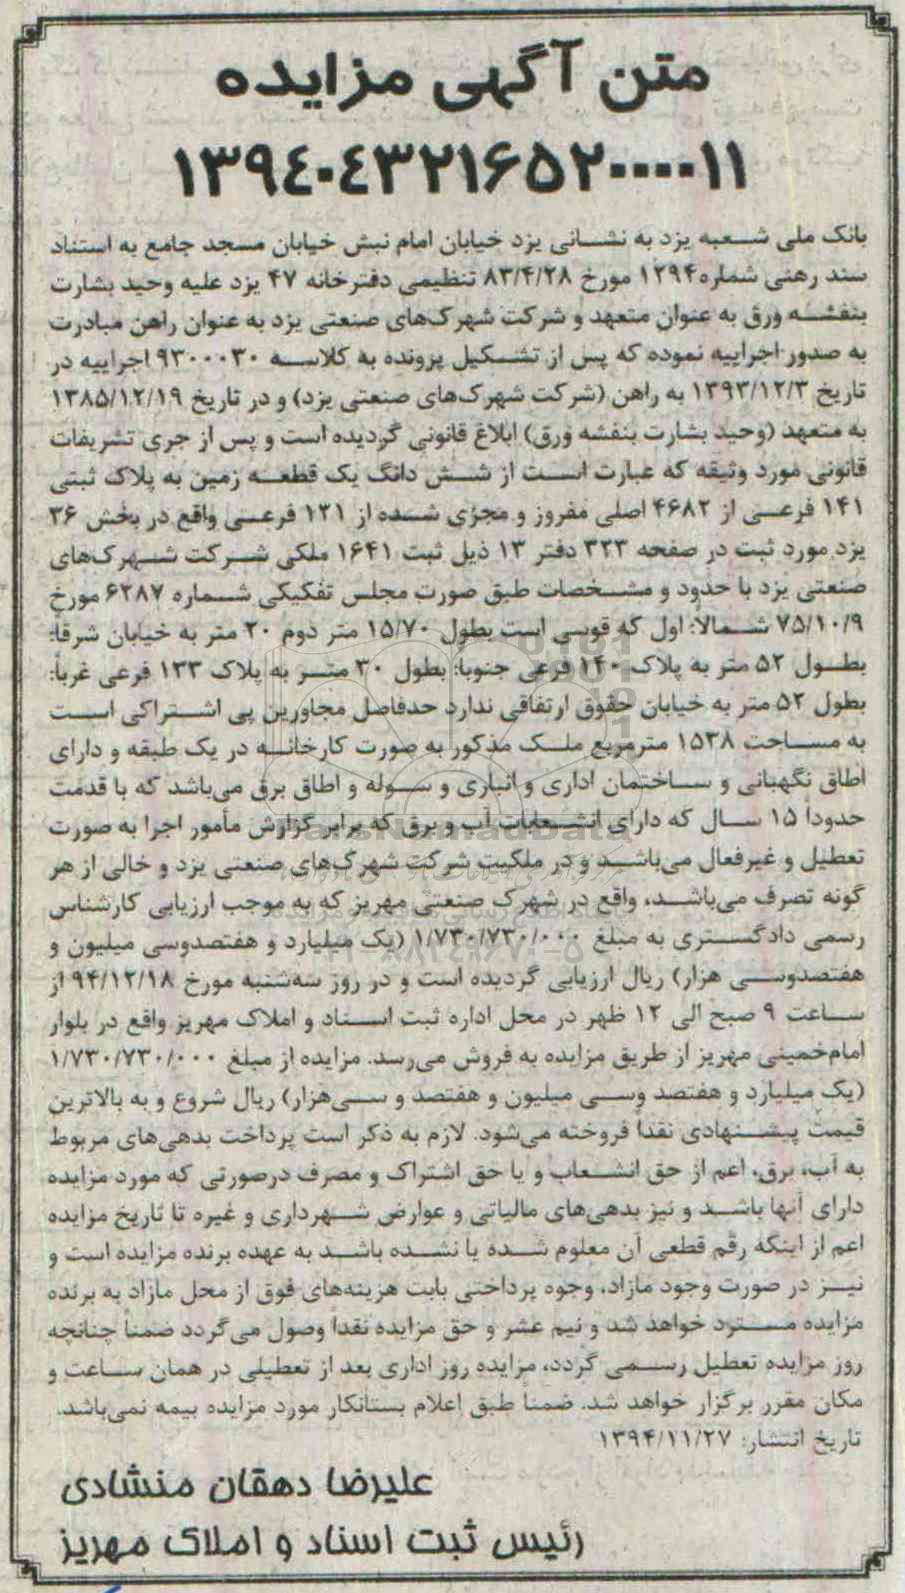 متن آگهی مزایده
۱۳۹۴۰۴۳۲۱۶۵۲۰۰۰۰۱۱
بانک ملی شعبه یزد به نشانی یزد خیابان امام نبش خیابان مسجد جامع به استناد
سند رهنی شماره ۱۲۹۴ مورخ ۸۳/۴/۲۸ تنظیمی دفترخانه ۴۷ یزد علیه وحید بشارت
بنفشه ورق به عنوان متعهد و شرکت شهرک‌های صنعتی یزد به عنوان راهن مبادرت
به صدور اجراییه نموده که پس از تشکیل پرونده به کلاسه ۹۳۰۰۰۳۰ اجراییه در
تاریخ ۱۳۹۳/۱۲/۳ به راهن (شرکت شهرک‌های صنعتی یزد) و در تاریخ ۱۳۸۵/۱۲/۱۹
به متعهد (وحید بشارت بنفشه ورق) ابلاغ قانونی گردیده است و پس از جری تشریفات
قانونی مورد وثیقه که عبارت است از شش دانگ یک قطعه زمین به پلاک ثبتی
۱۴۱ فرعی از ۴۶۸۲ اصلی مفروز و مجزی شده از ۱۲۱ فرعی واقع در بخش ۳۶
یزد مورد ثبت در صفحه ۳۲۳ دفتر ۱۳ ذیل ثبت ۱۶۴۱ ملکی شرکت شهرک‌های
صنعتی یزد با حدود و مشخصات طبق صورت مجلس تفکیکی شماره ۶۲۸۷ مورخ
۷۵/۱۰/۹ شمالا: اول که قوسی است بطول ۱۵/۷۰ متر دوم ۲۰ متر به خیابان شرقا:
بطول ۵۲ متر به پلاک ۱۴۰ فرعی جنوبا: بطول ۳۰ متر به پلاک ۱۳۳ فرعی غربا:
بطول ۵۲ متر به خیابان حقوق ارتفاقی ندارد حدفاصل مجاورین پی اشتراکی است
به مساحت ۱۵۳۸ مترمربع ملک مذکور به صورت کارخانه در یک طبقه و دارای
اطاق نگهبانی و ساختمان اداری و انباری و سوله و اطاق برق می‌باشد که با قدمت
حدودا ۱۵ سال که دارای انشعابات آب و برق که برابر گزارش مأمور اجرا به صورت
تعطیل و غیرفعال می‌باشد و در ملکیت شرکت شهرک‌های صنعتی یزد و خالی از هر
گونه تصرف می‌باشد، واقع در شهرک صنعتی مهریز که به موجب ارزیابی کارشناس
رسمی دادگستری به مبلغ ۱/۷۳۰/۷۳۰/۰۰۰ (یک میلیارد و هفتصدوسی میلیون و
هفتصدوسی هزار) ریال ارزیابی گردیده است و در روز سه‌شنبه مورخ ۹۴/۱۲/۱۸ از
ساعت ۹ صبح الی ۱۲ ظهر در محل اداره ثبت اسناد و املاک مهریز واقع در بلوار
امام‌خمینی مهریز از طریق مزایده به فروش می‌رسد. مزایده از مبلغ ۱/۷۳۰/۷۳۰/۰۰۰
(یک میلیارد و هفتصد وسی میلیون و هفتصد و سی‌هزار) ریال شروع و به بالاترین
قیمت پیشنهادی نقدا فروخته می‌شود. لازم به ذکر است پرداخت بدهی‌های مربوط
به آب، برق، اعم از حق انشعاب و یا حق اشتراک و مصرف درصورتی که مورد مزایده
دارای آنها باشد و نیز بدهی‌های مالیاتی و عوارض شهرداری و غیره تا تاریخ مزایده
اعم از اینکه رقم قطعی آن معلوم شده یا نشده باشد به عهده برنده مزایده است و
نیز در صورت وجود مازاد، وجوه پرداختی بابت هزینه‌های فوق از محل مازاد به برنده
مزایده مسترد خواهد شد و نیم عشر و حق مزایده نقدا وصول می‌گردد ضمنا چنانچه
روز مزایده تعطیل رسمی گردد، مزایده روز اداری بعد از تعطیلی در همان ساعت و
مکان مقرر برگزار خواهد شد. ضمنا طبق اعلام بستانکار مورد مزایده بیمه نمی‌باشد.
تاریخ انتشار: ۱۳۹۴/۱۱/۲۷
علیرضا دهقان منشادی
رئیس ثبت اسناد و املاک مهریز